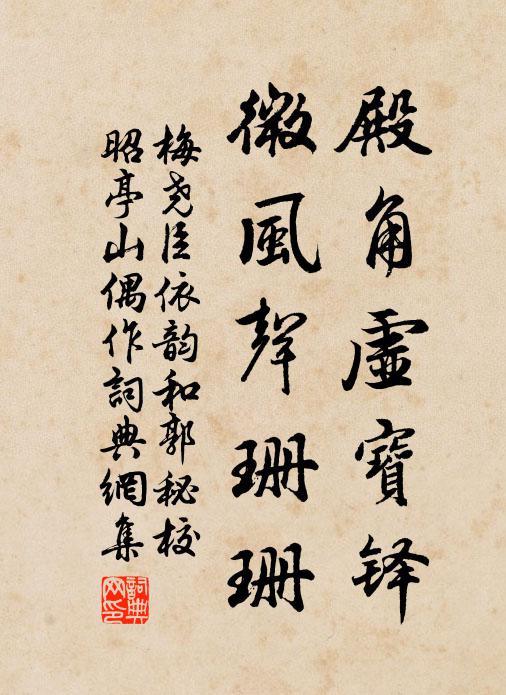 殿角虛寶铎
微風聲珊珊
梅堯臣依韵和郭秘校
昭亭山偶作詞典網集
詞典网印